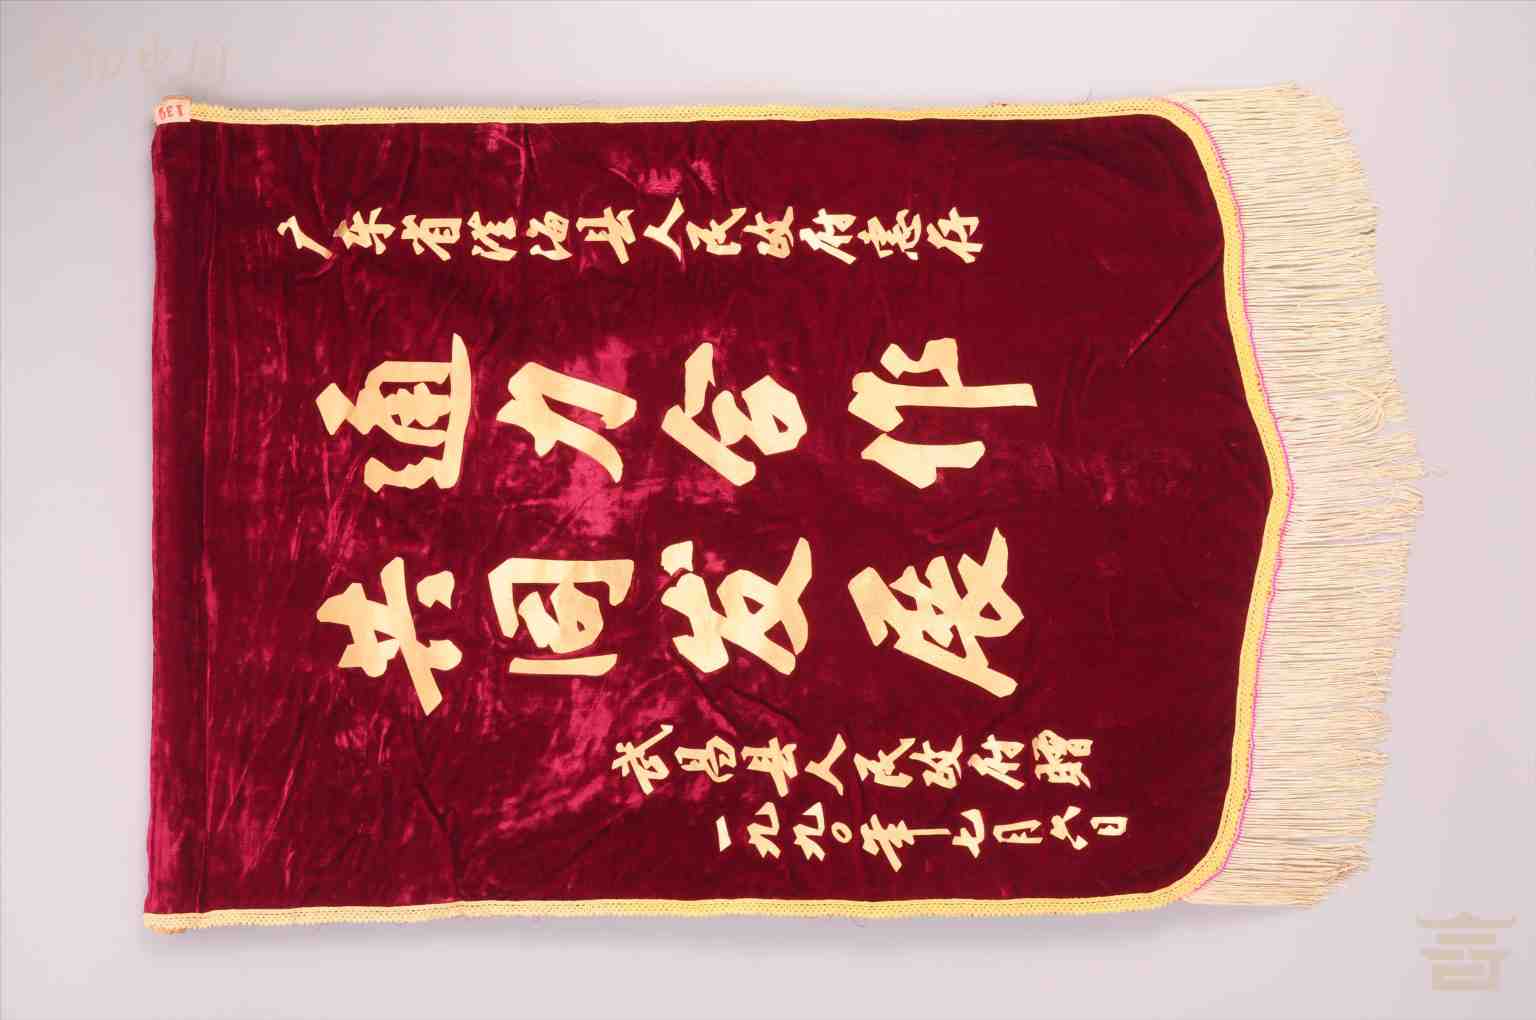 广东省澄海县人民政府惠存
通力合作
共同发展
武昌县人民政府赠
一九九〇年七月六日
139